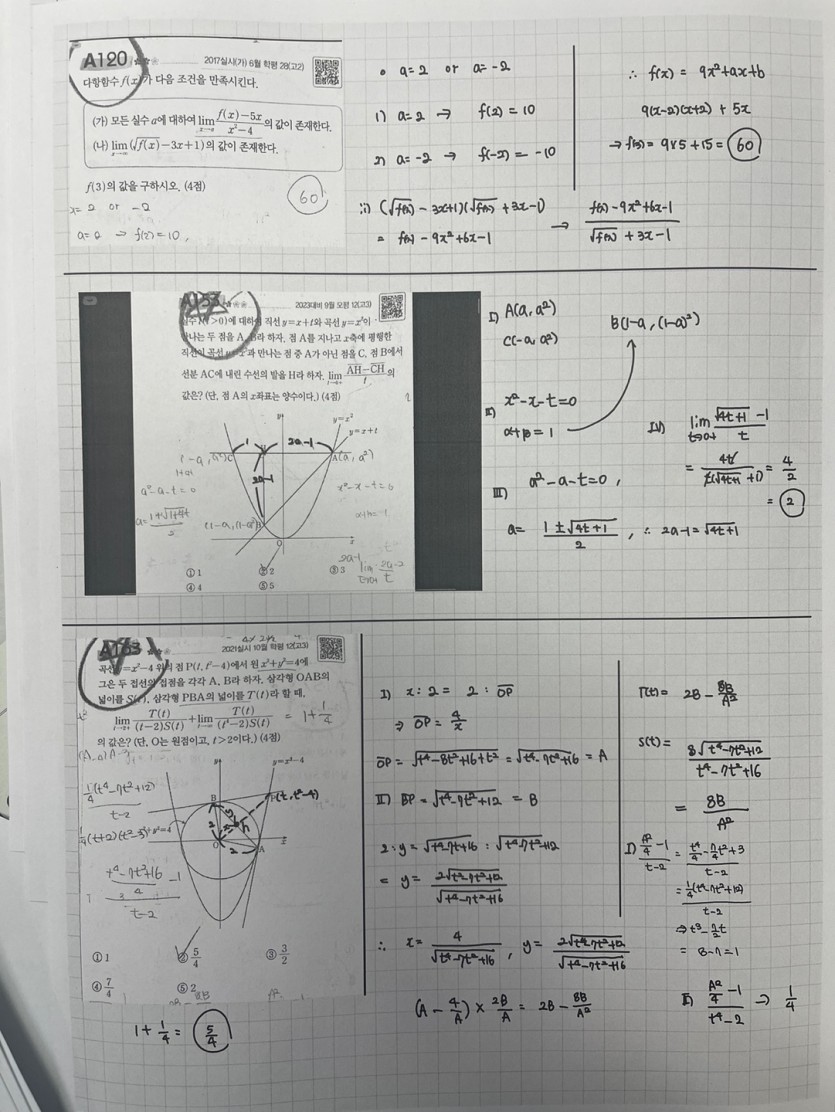 A120
2017실시(가) 6월 학평 28(고2)
다항함수 f(x)가 다음 조건을 만족시킨다.
(가) 모든 실수 a에 대하여 lim f(x)-5x / x²-4 의 값이 존재한다.
(나) lim(√f(x)-3x+1)의 값이 존재한다.
f(3)의 값을 구하시오. (4점)
60
x=2 or -2
a=2 → f(2)=10,
• a=2 or a=-2
1) a=2 → f(2)=10
2) a=-2 → f(-2)=-10
ii) (√f(x) - 3x+1)(√f(x) + 3x-1)
= f(x) - 9x²+6x-1
→ f(x)-9x²+6x-1 / √f(x) + 3x-1
∴ f(x) = 9x²+ax+b
9(x-2)(x+2) + 5x
→ f(3)= 9×5+15= 60
A153
2023대비 9월 모평 12(고3)
실수 t(t>0)에 대하여 직선 y=x+t와 곡선 y=x²이
만나는 두 점을 A, B라 하자. 점 A를 지나고 x축에 평행한
직선이 곡선 y=x²과 만나는 점 중 A가 아닌 점을 C, 점 B에서
선분 AC에 내린 수선의 발을 H라 하자. lim t→0+ AH-CH / t 의
값은? (단, 점 A의 x좌표는 양수이다.) (4점)
y=x²
y=x+t
1
2a-1
C
A(a, a²)
2a-1
a²-a-t=0
x²-x-t=0
a= 1+√1+4t / 2
(1-a, (1-a)²)
O
x
y
①1
②2
③3
④4
⑤5
I) A(a, a²)
C(-a, a²)
B(1-a, (1-a)²)
II) x²-x-t=0
α+β=1
III) a²-a-t=0,
a= 1±√4t+1 / 2 , ∴ 2a-1=√4t+1
IV) lim t→0+ √4t+1 -1 / t
= 4t / t(√4t+1 +1) = 4/2
= 2
A163
2021실시 10월 학평 12(고3)
곡선 y=x²-4 위의 점 P(t, t²-4)에서 원 x²+y²=4에
그은 두 접선의 접점을 각각 A, B라 하자. 삼각형 OAB의
넓이를 S(t), 삼각형 PBA의 넓이를 T(t)라 할 때,
lim T(t) / (t-2)S(t) + lim T(t) / (t⁴-2)S(t) = 1+1/4
의 값은? (단, O는 원점이고, t>2이다.) (4점)
1/4(t⁴-7t²+12) / t-2
1/4(t+2)(t²-3)
t⁴-7t²+16 / 4 - 1
t-2
y=x²-4
P(t, t²-4)
B
A
O
x
y
2
①1
②5/4
③3/2
④7/4
⑤2
1+1/4= 5/4
I) x:2 = 2:OP
⇒ OP = 4/x
OP = √t⁴-8t²+16+t² = √t⁴-7t²+16 = A
II) BP = √t⁴-7t²+12 = B
2:y = √t⁴-7t²+16 : √t⁴-7t²+12
= y = 2√t⁴-7t²+12 / √t⁴-7t²+16
∴ x= 4 / √t⁴-7t²+16 , y= 2√t⁴-7t²+12 / √t⁴-7t²+16
(A - 4/A) × 2B/A = 2B - 8B/A²
T(t)= 2B - 8B/A²
S(t)= 8√t⁴-7t²+12 / t⁴-7t²+16
= 8B / A²
I) A²/4 -1 / t-2 = t⁴/4 - 7/4t²+3 / t-2
= 1/4(t⁴-7t²+12) / t-2
⇒ t³-7/2t
= 8-7=1
II) A²/4 -1 / t⁴-2 → 1/4